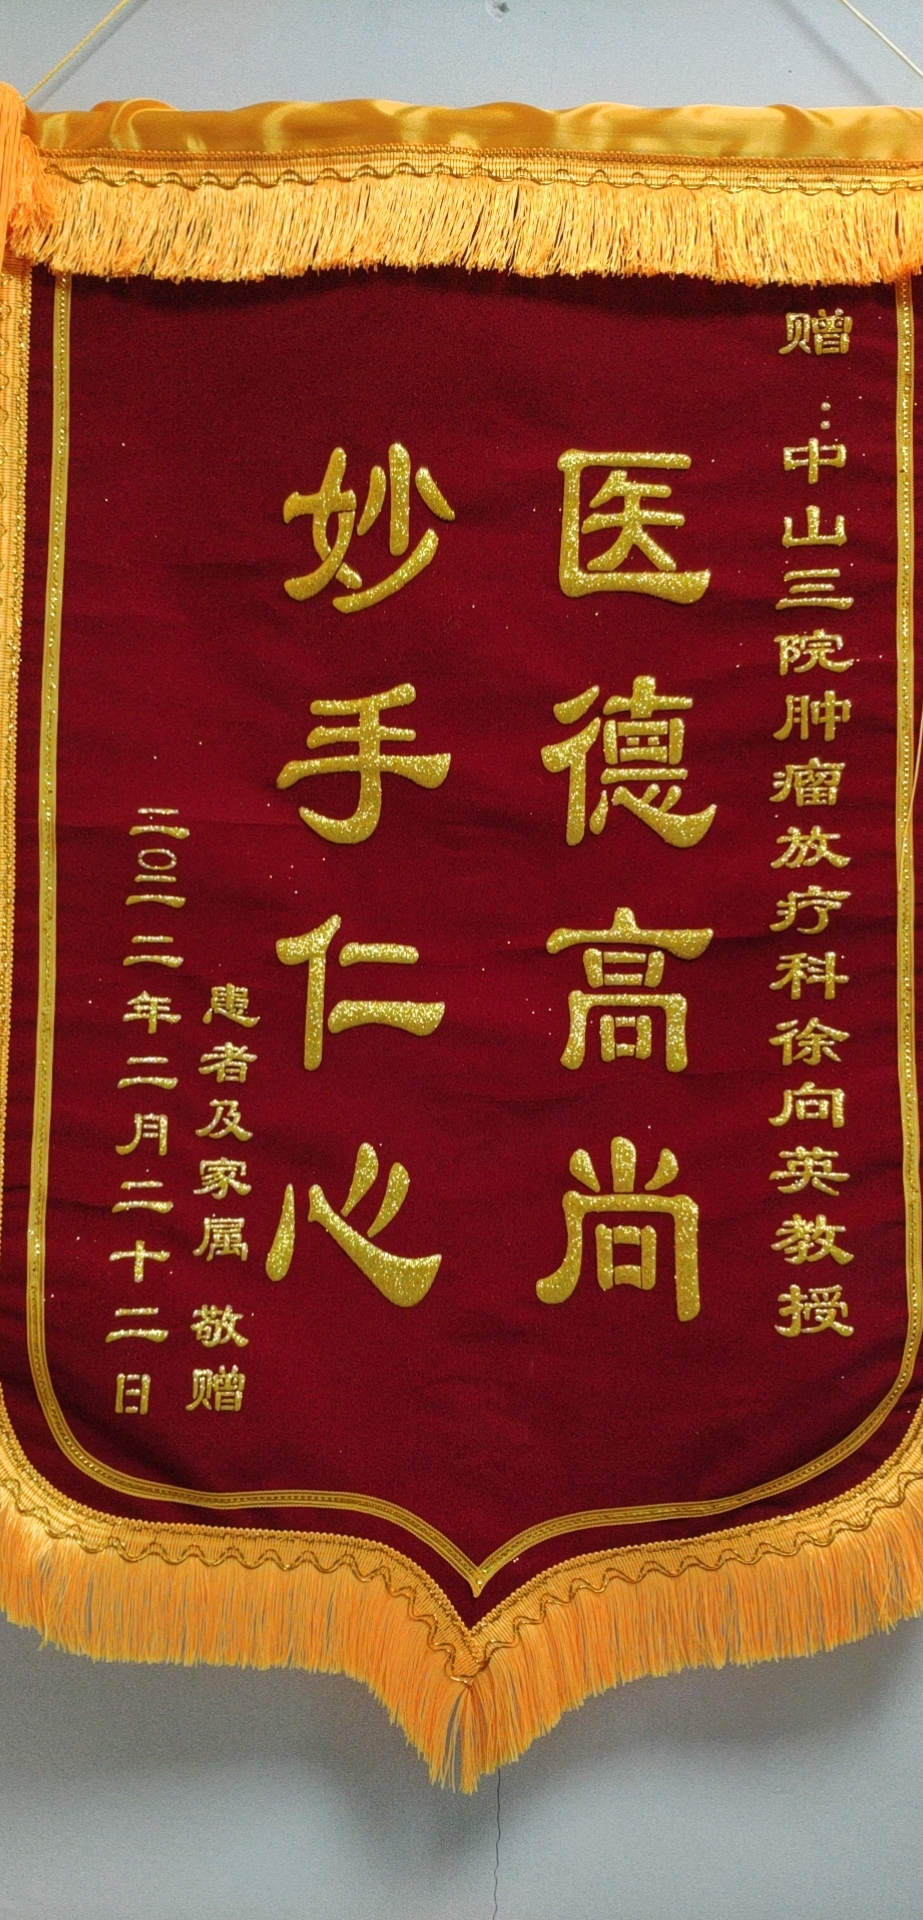 赠：中山三院肿瘤放疗科徐向英教授
医德高尚
妙手仁心
患者及家属 敬赠
二〇二二年二月二十二日